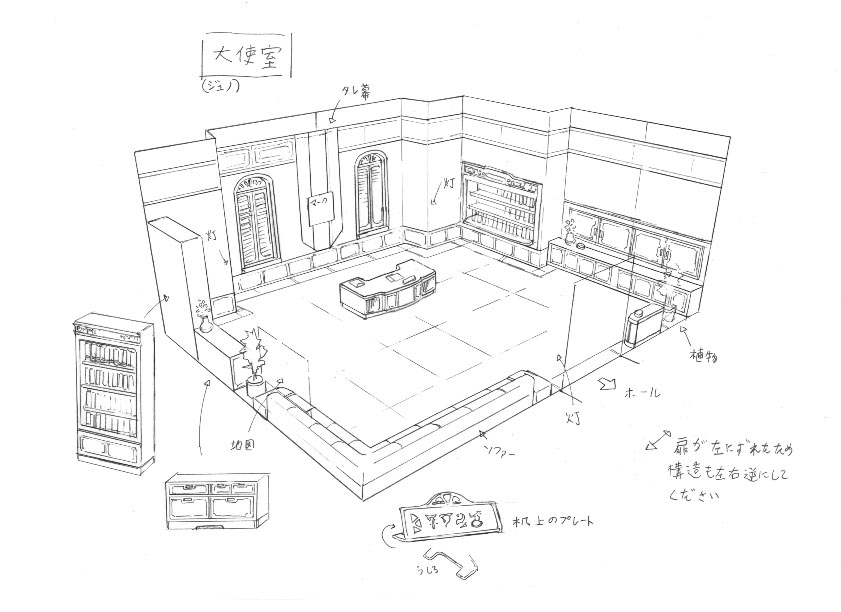 大使室
(ジュノ)
タレ幕
灯
マーク
灯
植物
ホール
灯
地図
ソファー
扉が左にずれたため
構造も左右逆にして
ください
机上のプレート
うしろ